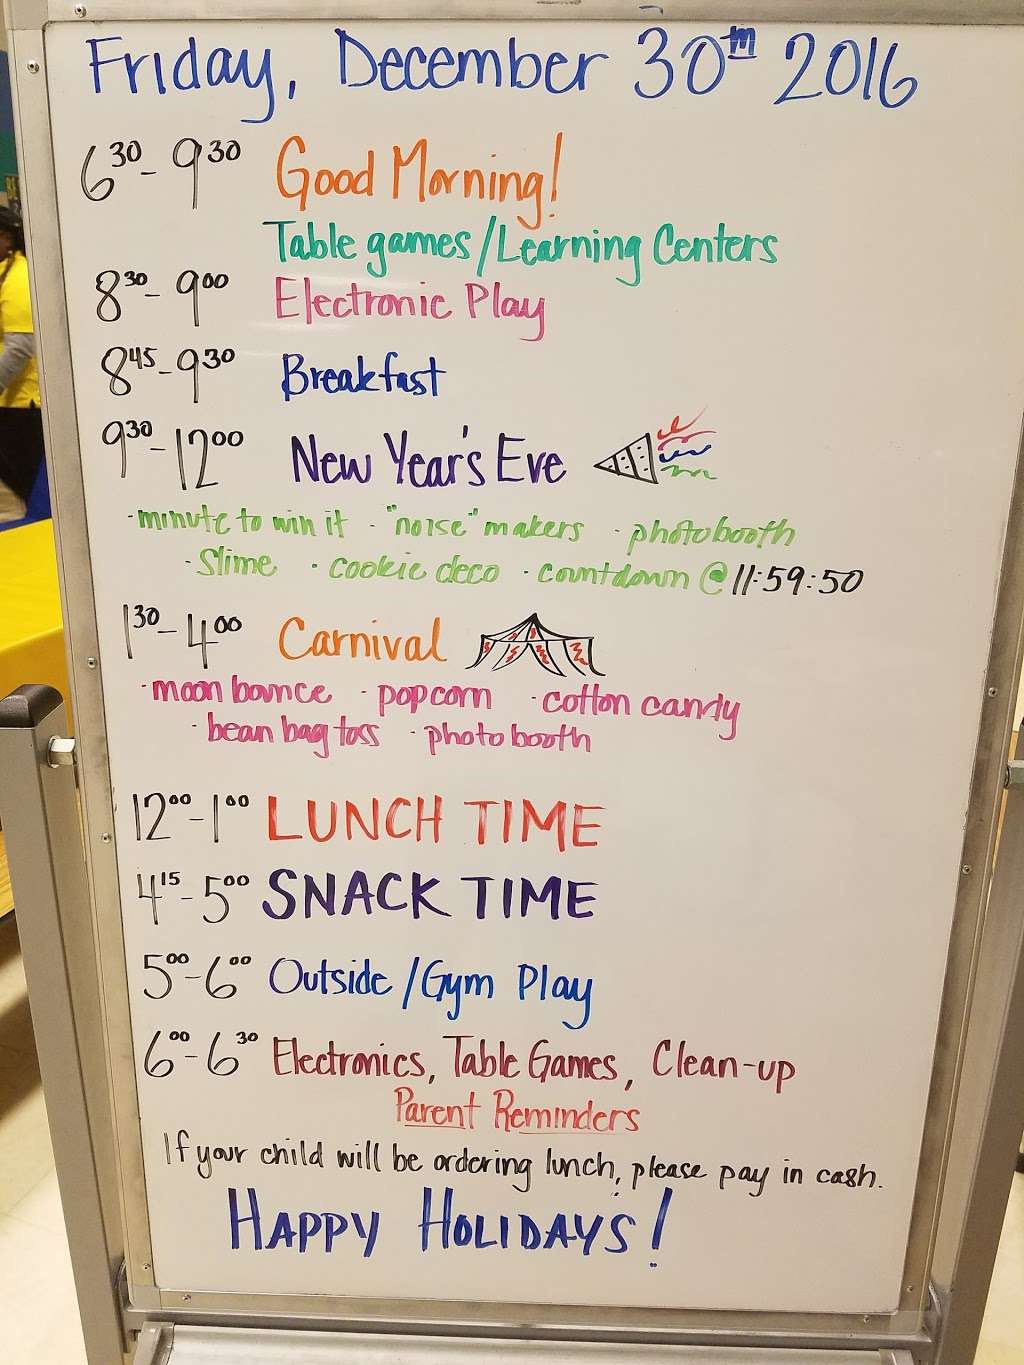 Friday, December 30th 2016
6 30 - 9 30 Good Morning!
Table games / Learning Centers
8 30 - 9 00 Electronic Play
8 45 - 9 30 Breakfast
9 30 - 12 00 New Year's Eve
· minute to win it · "noise" makers · photobooth
· Slime · cookie deco · countdown @ 11:59:50
1 30 - 4 00 Carnival
· moon bounce · popcorn · cotton candy
· bean bag toss · photobooth
12 00 - 1 00 LUNCH TIME
4 15 - 5 00 SNACK TIME
5 00 - 6 00 Outside / Gym Play
6 00 - 6 30 Electronics, Table Games, Clean-up
Parent Reminders
If your child will be ordering lunch, please pay in cash.
HAPPY HOLIDAYS!